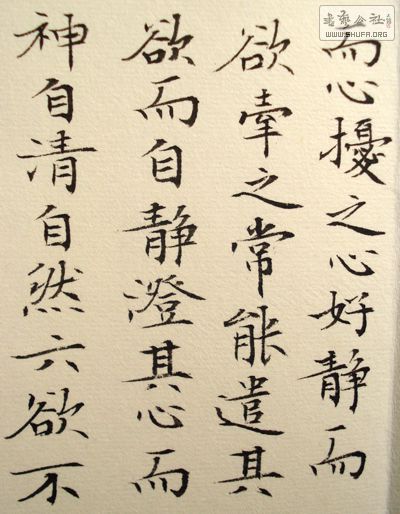 而心擾之心好静而
欲牽之常能遣其
欲而自静澄其心而
神自清自然六欲不
書藝公社
WWW.SHUFA.ORG